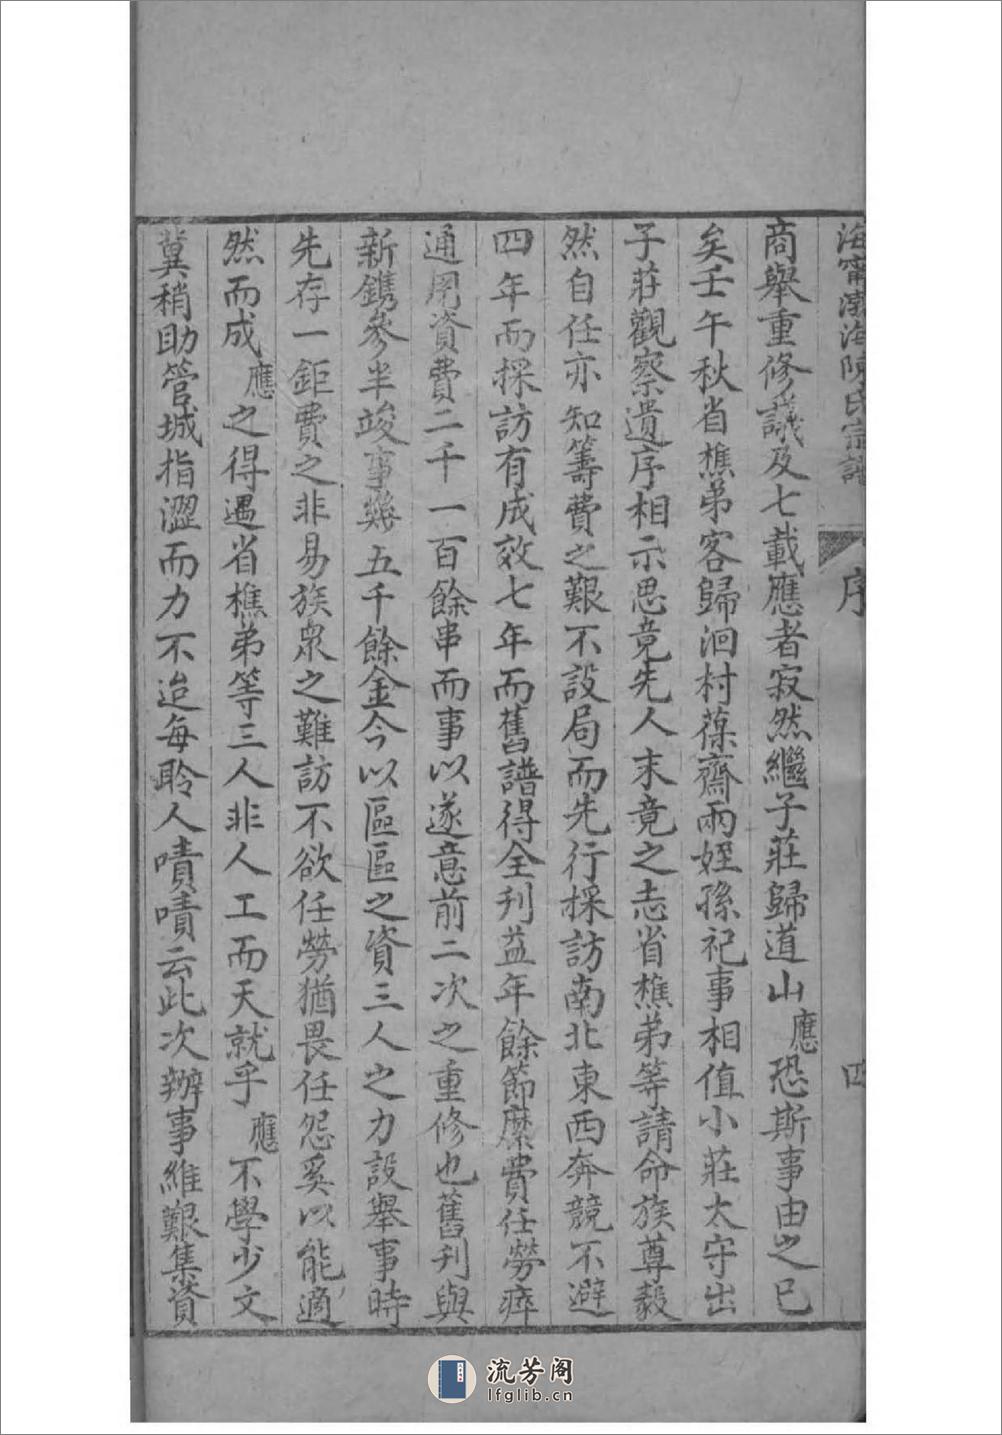 海寧渤海陳氏宗譜 序 四
商舉重修議及七載應者寂然繼子莊歸道山應恐斯事由之已
矣壬午秋省樵弟客歸洄村葆齋兩姪孫祀事相值小莊太守出
子莊觀察遺序相示思竟先人末竟之志省樵弟等請命族尊毅
然自任亦知籌費之艱不設局而先行採訪南北東西奔競不避
四年而採訪有成效七年而舊譜得全刊益年餘節縻費任勞瘁
通用資費二千一百餘串而事以遂意前二次之重修也舊刊與
新鐫參半竣事幾五千餘金今以區區之資三人之力設舉事時
先存一鉅費之非易族衆之難訪不欲任勞猶畏任怨奚以能適
然而成應之得遇省樵弟等三人非人工而天就乎應不學少文
冀稍助管城指澀而力不迨每聆人嘖嘖云此次辦事維艱集資
流芳阁
lfglib.cn